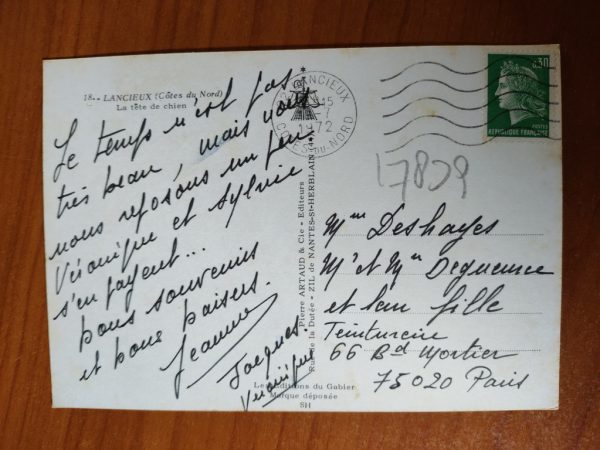 18.- LANCIEUX (Côtes du Nord)
La tête de chien
Le temps n'est pas
très beau, mais nous
nous reposons un peu
Véronique et Sylvie
s'en payent...
bons souvenirs
et bons baisers.
Jeanne
Jacques.
Véronique
Pierre ARTAUD & Cie - Editeurs
Rue de la Dutée - ZIL de NANTES-St-HERBLAIN 44
Les Editions du Gabier
Marque déposée
SH
LANCIEUX
15
1972
COTES-DU-NORD
0,30
POSTES
REPUBLIQUE FRANÇAISE
17809
Mme Deshayes
Mr et Mme
et leur fille
Teinturerie
66 Bd Mortier
75020 Paris